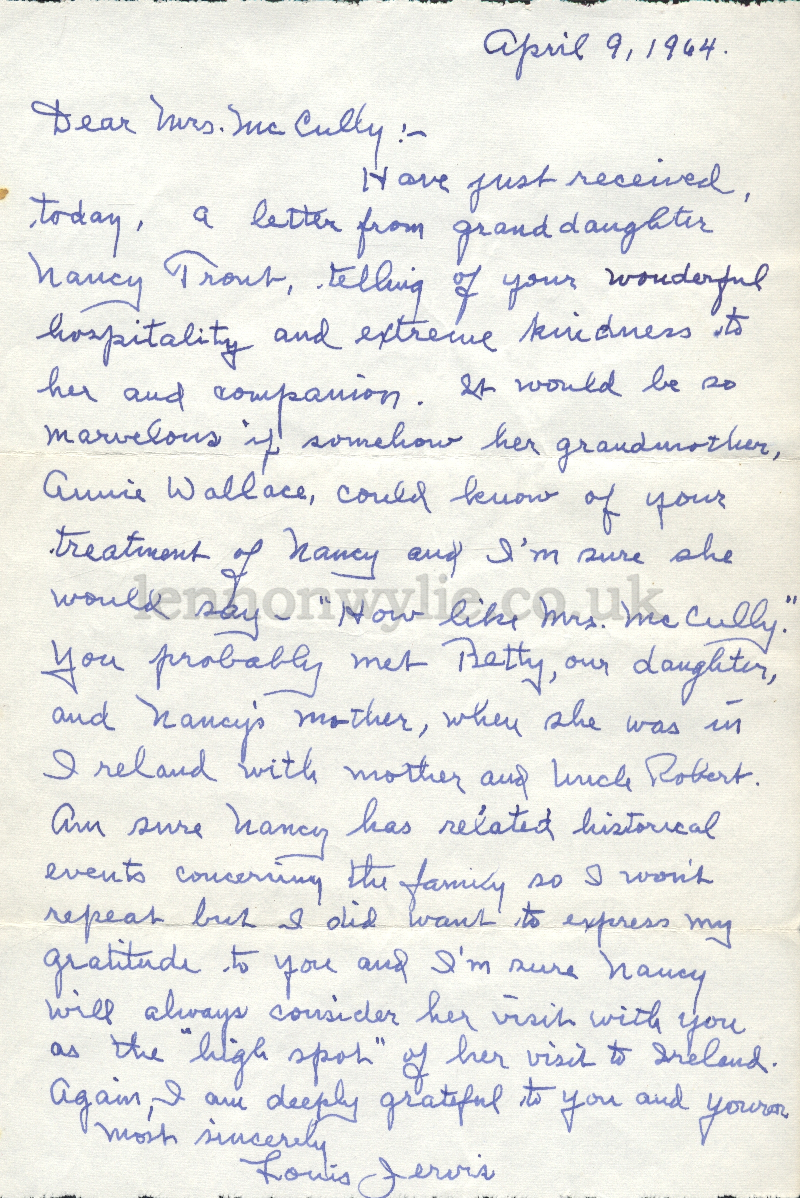 April 9, 1964.
Dear Mrs. McCully :-
Have just received,
today, a letter from granddaughter
Nancy Trout, telling of your wonderful
hospitality and extreme kindness to
her and companion. It would be so
marvelous if somehow her grandmother,
Annie Wallace, could know of your
treatment of Nancy and I'm sure she
would say - "How like Mrs. McCully."
lennonwylie.co.uk
You probably met Betty, our daughter,
and Nancy's mother, when she was in
Ireland with mother and Uncle Robert.
Am sure Nancy has related historical
events concerning the family so I won't
repeat but I did want to express my
gratitude to you and I'm sure Nancy
will always consider her visit with you
as the "high spot" of her visit to Ireland.
Again, I am deeply grateful to you and yours
most sincerely
Louis Jervis